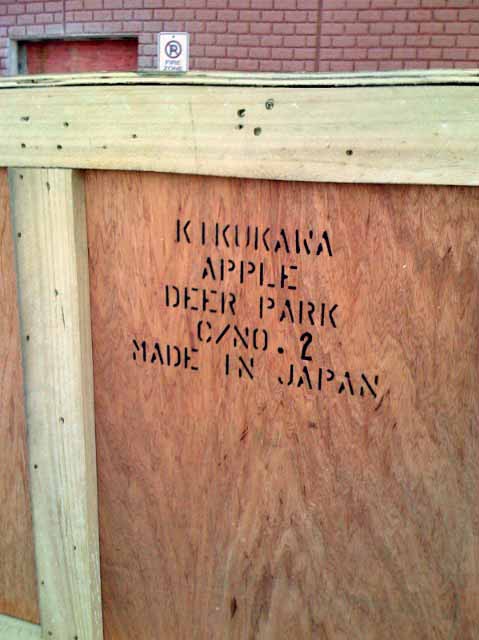 FIRE
ZONE
KIKUKAWA
APPLE
DEER PARK
C/NO. 2
MADE IN JAPAN